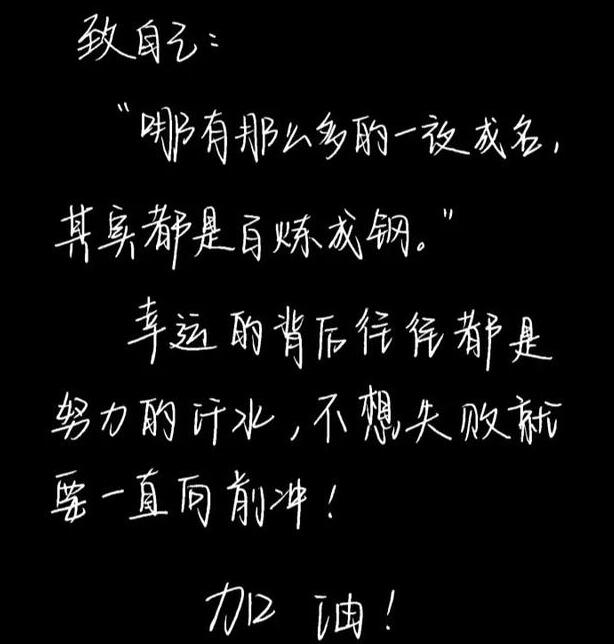 致自己：
“哪有那么多的一夜成名，
其实都是百炼成钢。”
幸运的背后往往都是
努力的汗水，不想失败就
要一直向前冲！
加油！